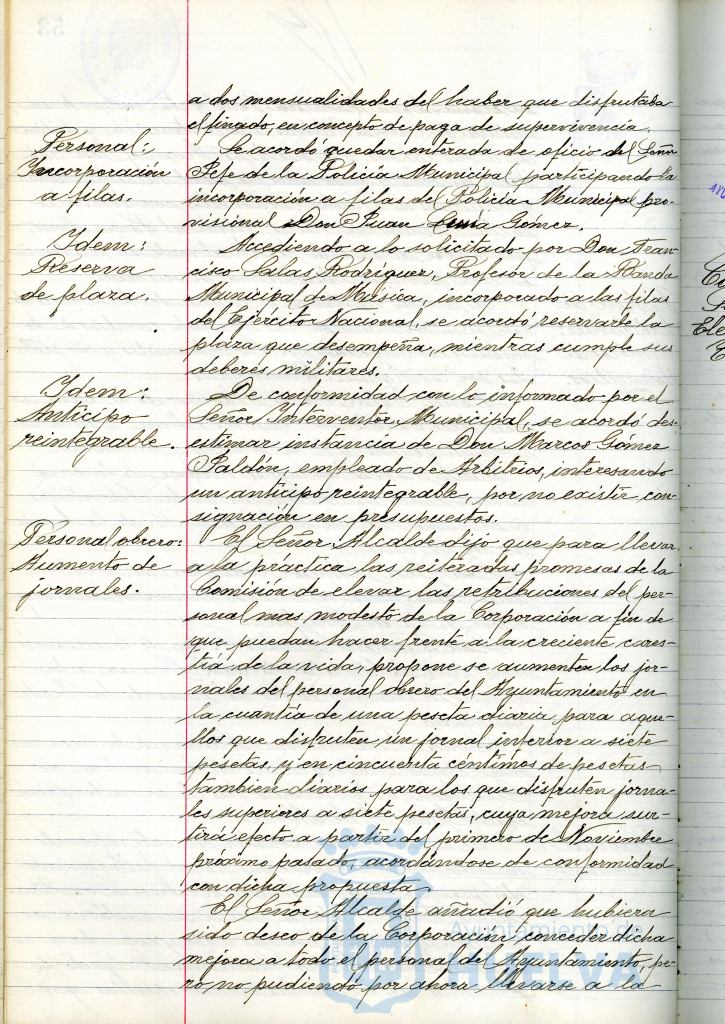 a dos mensualidades del haber que disfrutaba
el finado, en concepto de paga de supervivencia.
Personal:
Incorporación
a filas.
Se acordó quedar enterada de oficio del Señor
Jefe de la Policía Municipal participando la
incorporación a filas del Policía Municipal pro-
visional Don Juan Gómez.
Idem:
Reserva
de plaza.
Accediendo a lo solicitado por Don Fran-
cisco Salas Rodriguez, Profesor de la Banda
Municipal de Música, incorporado a las filas
del Ejército Nacional, se acordó reservarle la
plaza que desempeña, mientras cumple sus
deberes militares.
Idem:
Anticipo
reintegrable.
De conformidad con lo informado por el
Señor Interventor Municipal, se acordó des-
estimar instancia de Don Marcos Gómez
Saldón, empleado de Arbitrios, interesando
un anticipo reintegrable, por no existir con-
signación en presupuestos.
Personal obrero:
Aumento de
jornales.
El Señor Alcalde dijo que para llevar
a la práctica las reiteradas promesas de la
Comisión de elevar las retribuciones del per-
sonal mas modesto de la Corporación a fin de
que puedan hacer frente a la creciente cares-
tía de la vida, propone se aumenten los jor-
nales del personal obrero del Ayuntamiento en
la cuantía de una peseta diaria para aque-
llos que disfruten un jornal inferior a siete
pesetas y en cincuenta céntimos de pesetas
tambien diarios para los que disfruten jorna-
les superiores a siete pesetas, cuya mejora sur-
tirá efecto a partir del primero de Noviembre
próximo pasado, acordándose de conformidad
con dicha propuesta.
El Señor Alcalde añadió que hubiera
sido deseo de la Corporación conceder dicha
mejora a todo el personal del Ayuntamiento, pe-
ro no pudiendo por ahora llevarse a la
Ayuntamiento de
HUELVA